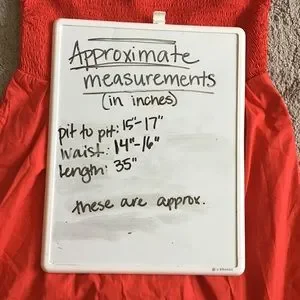 Approximate
measurements
(in inches)
pit to pit: 15"-17"
waist: 14"-16"
length: 35"
these are approx.